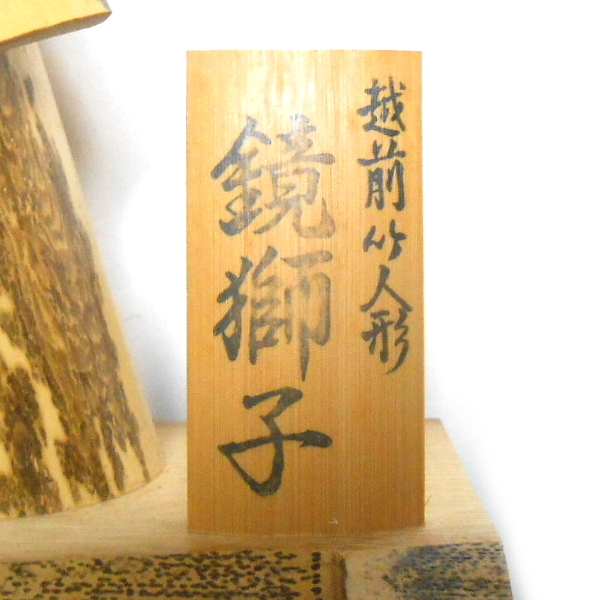 越前竹人形
鏡獅子